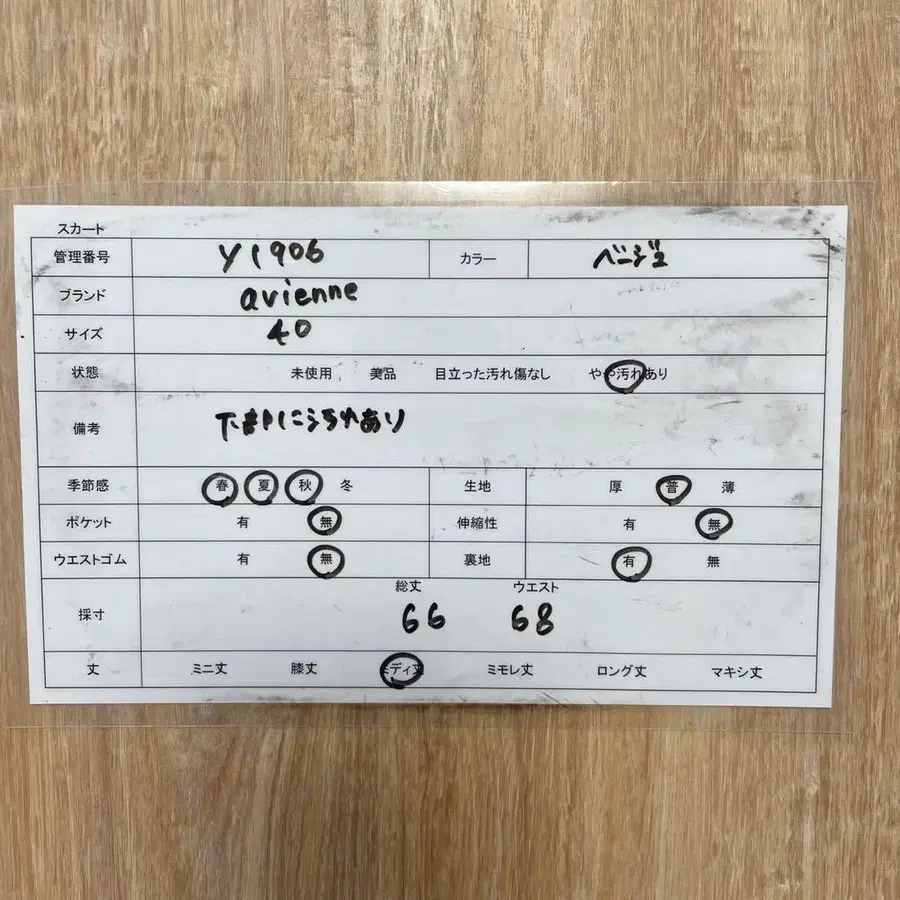 スカート
管理番号 Y1906 カラー ベージュ
ブランド avienne
サイズ 40
状態 未使用 美品 目立った汚れ傷なし やや汚れあり
備考 に汚れあり
季節感 春 夏 秋 冬 生地 厚 普 薄
ポケット 有 無 伸縮性 有 無
ウエストゴム 有 無 裏地 有 無
総丈 ウエスト
採寸 66 68
丈 ミニ丈 膝丈 ミディ丈 ミモレ丈 ロング丈 マキシ丈